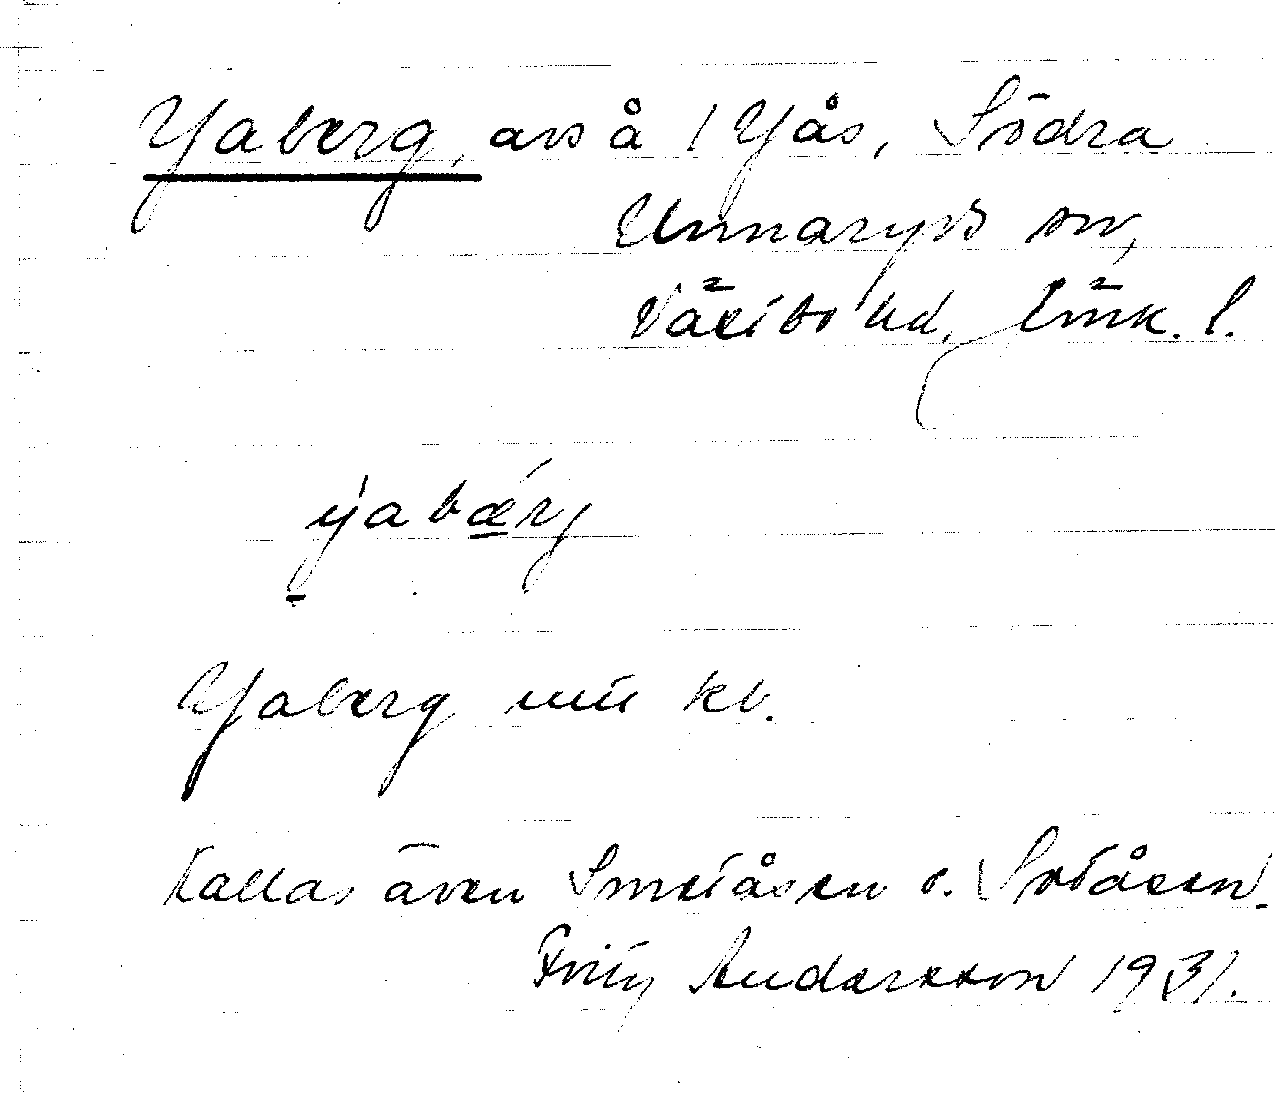 Yaberg, avs å 1 Yås, Södra
Unnaryds sn,
Västbo hd, Jönk. l.
yabærg
Yaberg uttr kb.
Kallas även Smedåsen o. Sotåsen.
Fritz Andersson 1931.